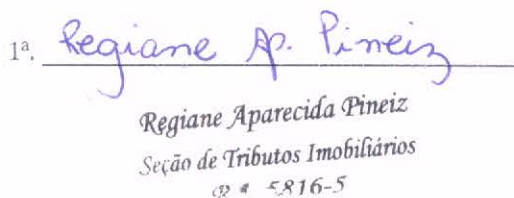 1ª. Regiane Ap. Pineiz
Regiane Aparecida Pineiz
Seção de Tributos Imobiliários
5816-5